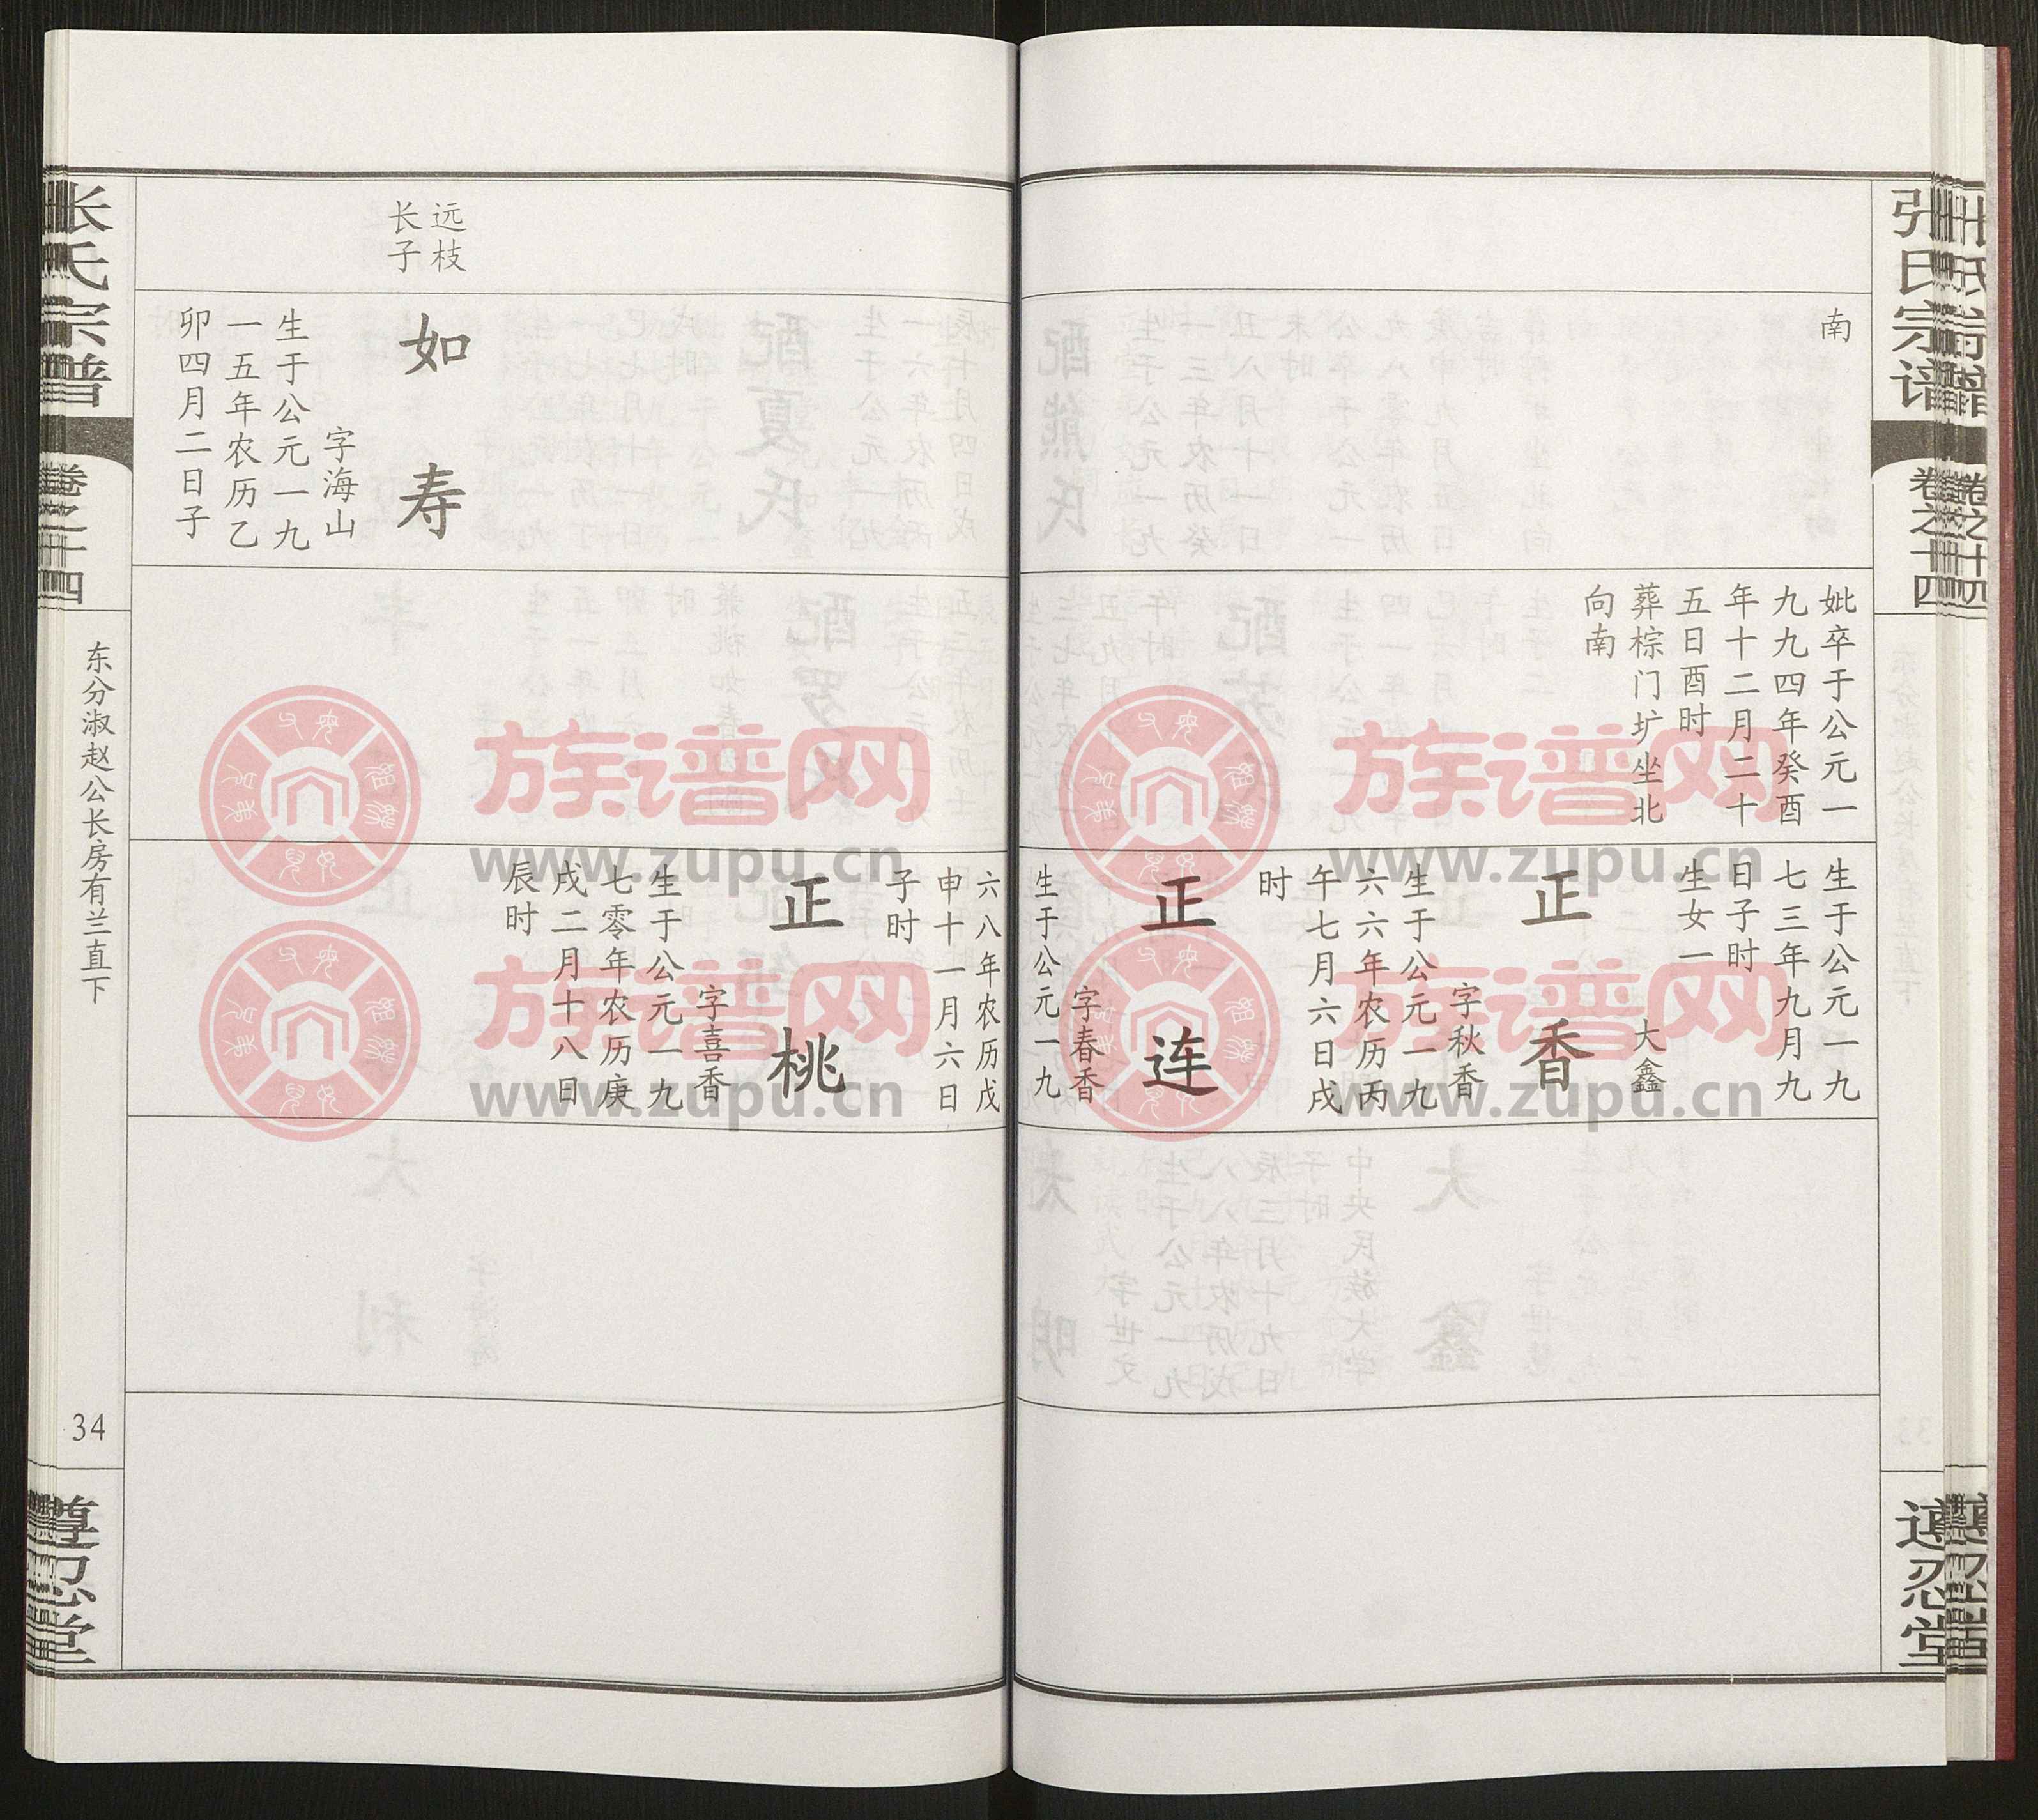 张氏宗谱
卷之十四
遵忍堂
南
妣卒于公元一
九九四年癸酉
年十二月二十
五日酉时
葬棕门圹坐北
向南
生于公元一九
七三年九月九
日子时
生女一
大鑫
正香
字秋香
生于公元一九
六六年农历丙
午七月六日戌
时
正连
字春香
生于公元一九
六八年农历戊
申十一月六日
子时
正桃
字喜香
生于公元一九
七零年农历庚
戌二月十八日
辰时
远枝
长子
如寿
字海山
生于公元一九
一五年农历乙
卯四月二日子
张氏宗谱
卷之十四
东分淑赵公长房有兰直下
34
遵忍堂
族谱网
www.zupu.cn
族谱网
www.zupu.cn
族谱网
www.zupu.cn
族谱网
www.zupu.cn